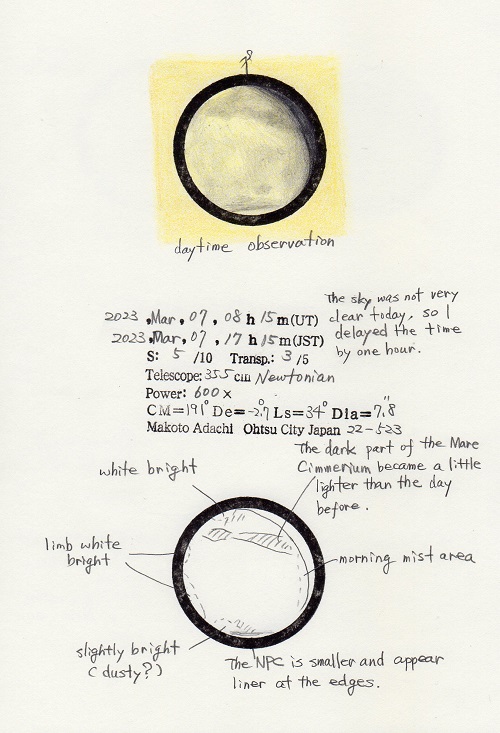 daytime observation
2023, Mar, 07, 08 h 15 m (UT)
2023, Mar, 07, 17 h 15 m (JST)
The sky was not very
clear today, so I
delayed the time
by one hour.
S: 5 /10 Transp.: 3 /5
Telescope: 355 cm Newtonian
Power: 600 x
CM=191° De=-2.7° Ls=34° Dia=7.8"
Makoto Adachi Ohtsu City Japan 22-523
The dark part of the Mare
Cimmerium became a little
lighter than the day
before.
white bright
limb white
bright
morning mist area
slightly bright
(dusty?)
The NPC is smaller and appear
liner at the edges.